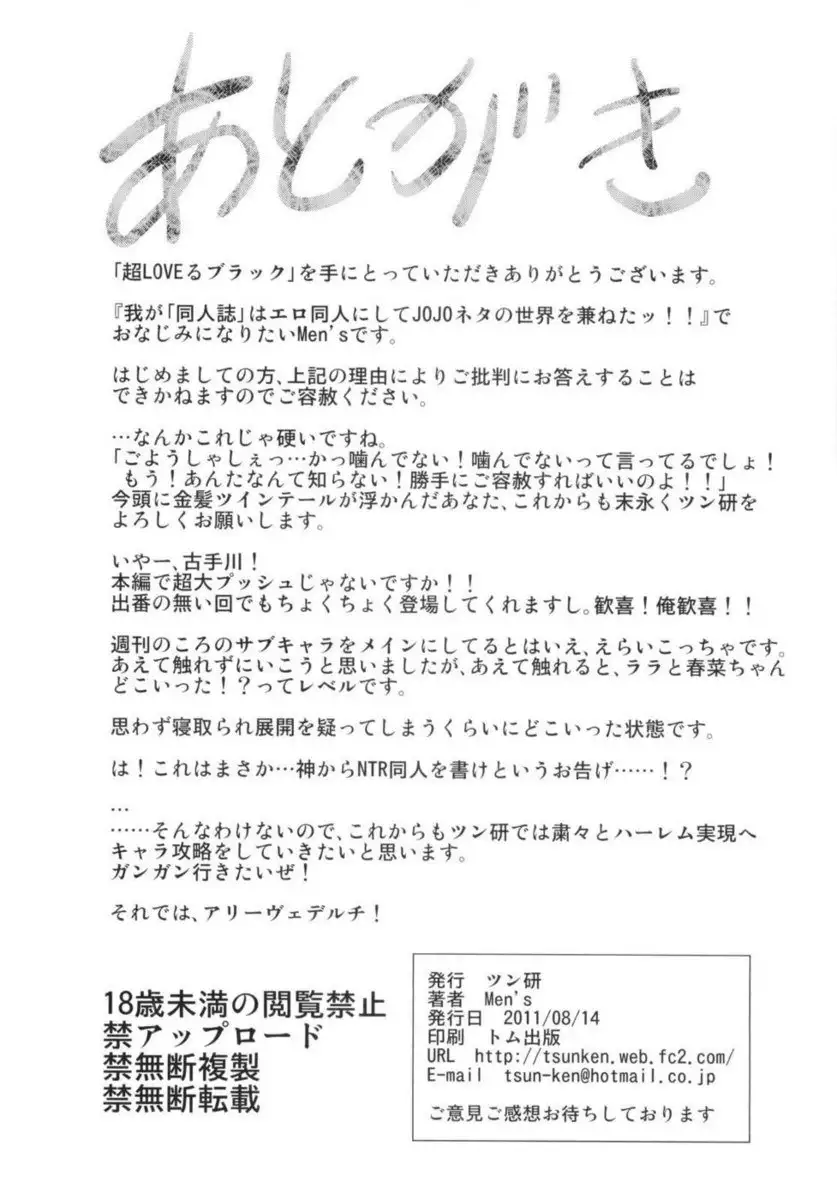 あとがき
「超LOVEるブラック」を手にとっていただきありがとうございます。
『我が「同人誌」はエロ同人にしてJOJOネタの世界を兼ねたッ！！』で
おなじみになりたいMen'sです。
はじめましての方、上記の理由によりご批判にお答えすることは
できかねますのでご容赦ください。
…なんかこれじゃ硬いですね。
「ごようしゃしぇっ…かっ噛んでない！噛んでないって言ってるでしょ！
もう！あんたなんて知らない！勝手にご容赦すればいいのよ！！」
今頭に金髪ツインテールが浮かんだあなた、これからも末永くツン研を
よろしくお願いします。
いやー、古手川！
本編で超大プッシュじゃないですか！！
出番の無い回でもちょくちょく登場してくれますし。歓喜！俺歓喜！！
週刊のころのサブキャラをメインにしてるとはいえ、えらいこっちゃです。
あえて触れずにいこうと思いましたが、あえて触れると、ララと春菜ちゃん
どこいった！？ってレベルです。
思わず寝取られ展開を疑ってしまうくらいにどこいった状態です。
は！これはまさか…神からNTR同人を書けというお告げ……！？
…
……そんなわけないので、これからもツン研では粛々とハーレム実現へ
キャラ攻略をしていきたいと思います。
ガンガン行きたいぜ！
それでは、アリーヴェデルチ！
18歳未満の閲覧禁止
禁アップロード
禁無断複製
禁無断転載
発行　ツン研
著者　Men's
発行日　2011/08/14
印刷　トム出版
URL　http://tsunken.web.fc2.com/
E-mail　tsun-ken@hotmail.co.jp
ご意見ご感想お待ちしております